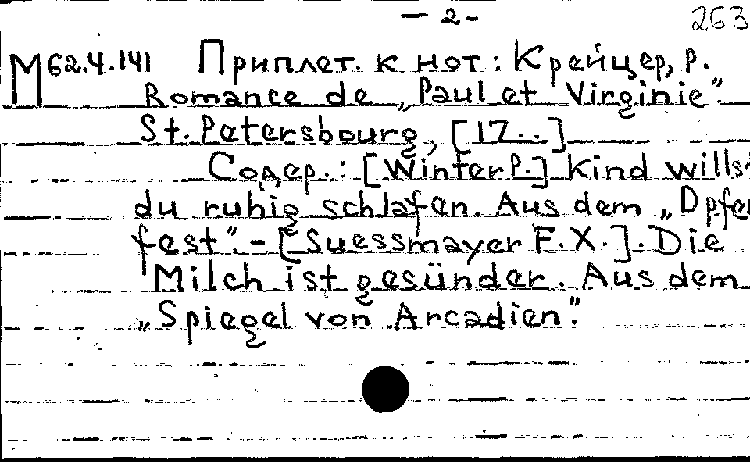 — 2 -
263
М 62.4.141 Приплет. к нот: Крейцер, Р.
Romance de „Paul et Virginie".
St. Petersbourg, [17..]
Содер.: [Winter P.] Kind wills
du ruhig schlafen. Aus dem „Opfer
fest". - [Suessmayer F. X.]. Die
Milch ist gesünder. Aus dem
„Spiegel von Arcadien".